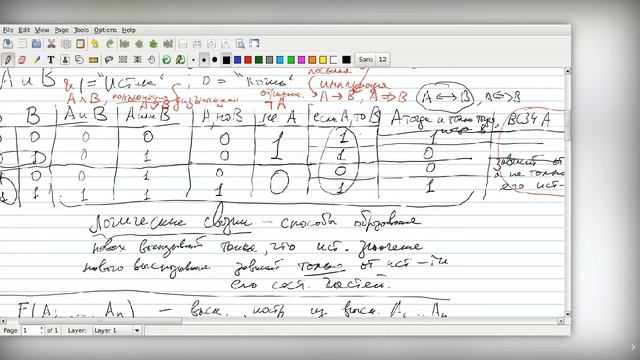 File Edit View Page Tools Options Help
Sans 12
A и B & 1 = "Истина" ; 0 = "Ложь"
A ∧ B, конъюнкция A ∨ B дизъюнкция ¬A A → B, A ⇒ B A ⟷ B, A ⟺ B
импликация
B A и B A или B A, но B не A если A, то B A тогда и только тогда, когда B ВСЗЧ A
0 0 0 0 1 1 1
0 1 0 1 1 1 0 зависит от
0 0 1 0 0 0 а не только
1 1 1 1 1 0 1 1 его ист-
Логические связки — способы образования
новых высказываний такие, что ист. значение
нового высказывания зависит только от ист-ти
его сост. частей.
F(A₁, ..., Aₙ) — выск. из выск. A₁ ... Aₙ
Page 1 of 1 Layer: Layer 1